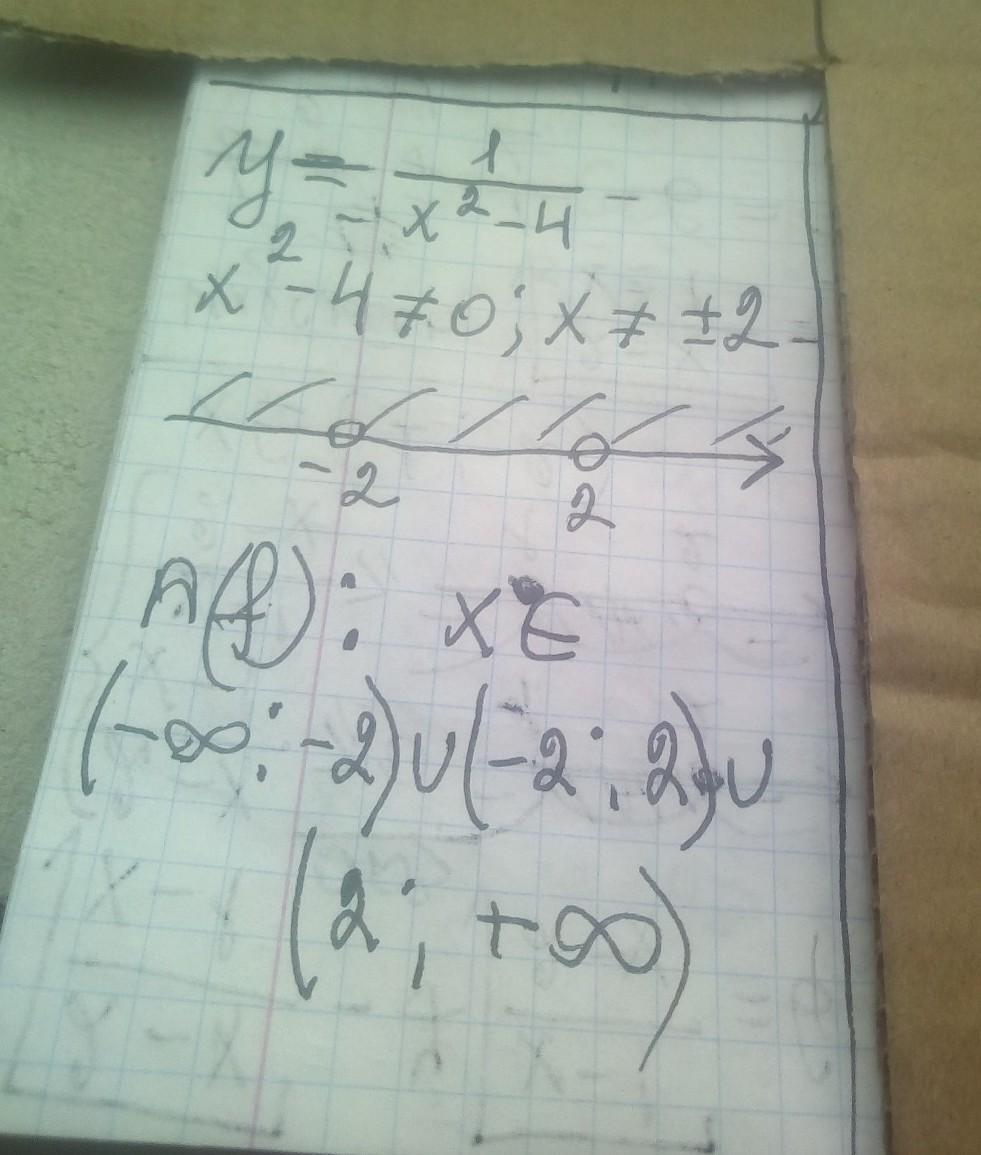 y = 1/(x² - 4)
x² - 4 ≠ 0; x ≠ ±2
-2 2
D(f): x ∈
(-∞; -2) ∪ (-2; 2) ∪
(2; +∞)